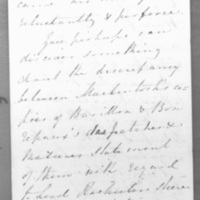 came are not
reluctantly & perforce.
You perhaps can
discover something
about the discrepancy
between Mackintosh's co-
pies of Barillon & Bon
repaux's despatches &
Mazure's statement
of them with regard
to Lord Rochester's